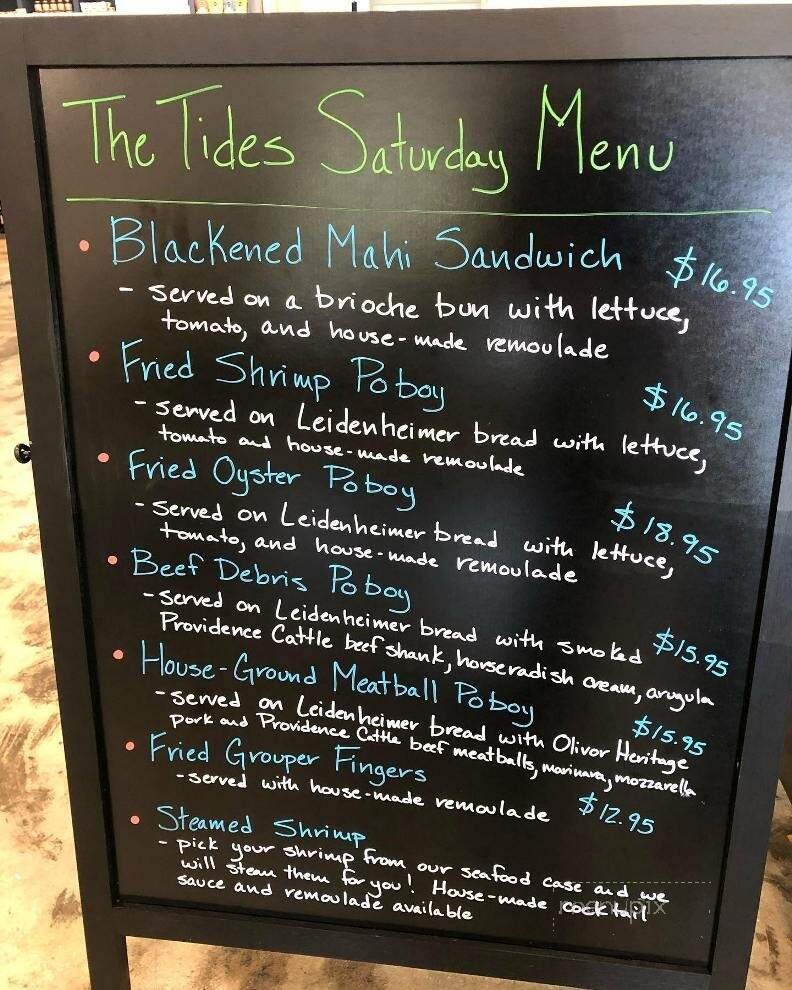 The Tides Saturday Menu
• Blackened Mahi Sandwich $16.95
- served on a brioche bun with lettuce,
tomato, and house-made remoulade
• Fried Shrimp Poboy $16.95
- served on Leidenheimer bread with lettuce,
tomato and house-made remoulade
• Fried Oyster Poboy $18.95
- served on Leidenheimer bread with lettuce,
tomato, and house-made remoulade
• Beef Debris Poboy $15.95
- served on Leidenheimer bread with smoked
Providence Cattle beef shank, horseradish cream, arugula
• House-Ground Meatball Poboy $15.95
- served on Leidenheimer bread with Olivor Heritage
pork and Providence Cattle beef meatballs, marinara, mozzarella
• Fried Grouper Fingers $12.95
- served with house-made remoulade
• Steamed Shrimp
- pick your shrimp from our seafood case and we
will steam them for you! House-made cocktail
sauce and remoulade available
menupix